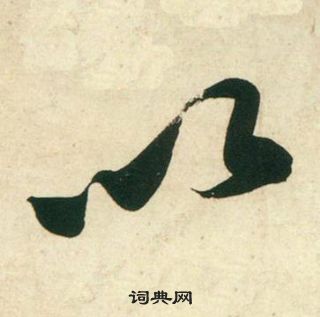 以
词典网